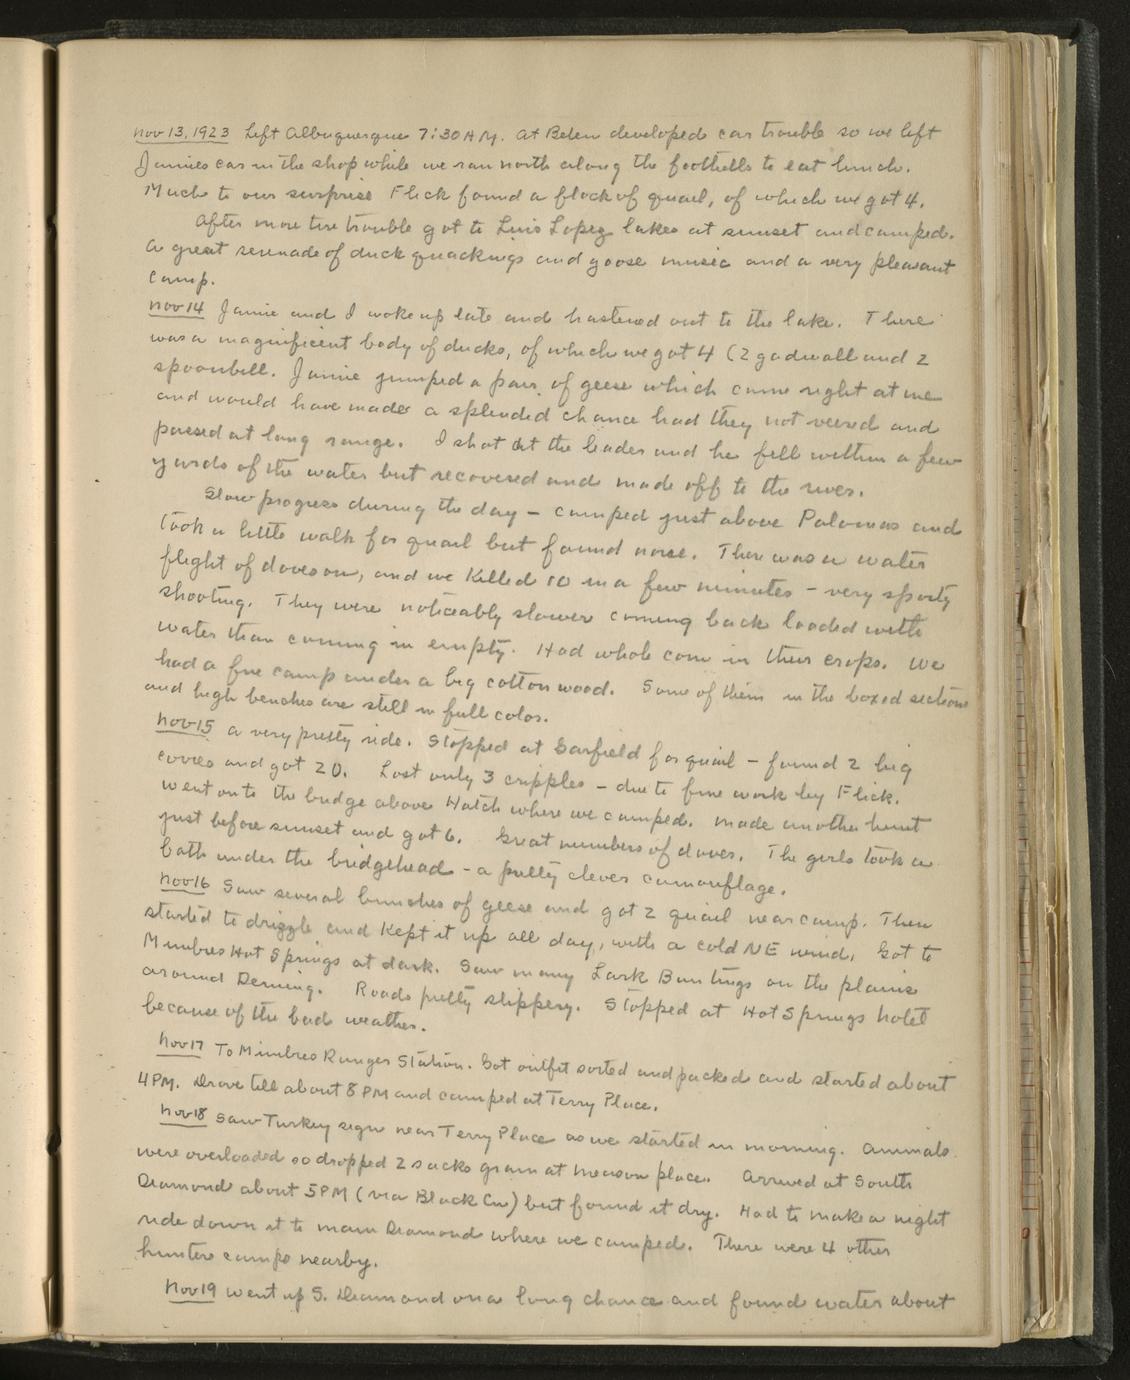 Nov 13, 1923 Left Albuquerque 7:30 AM. At Belen developed car trouble so we left
Jamies car in the shop while we ran north along the foothills to eat lunch.
Much to our surprise Flick found a flock of quail, of which we got 4.
After more tire trouble got to Luis Lopez lakes at sunset and camped.
A great serenade of duck quackings and goose music and a very pleasant
camp.
Nov 14 Jamie and I woke up late and hastened out to the lake. There
was a magnificent body of ducks, of which we got 4 (2 gadwall and 2
spoonbill. Jamie jumped a pair of geese which came right at me
and would have made a splendid chance had they not veered and
passed at long range. I shot at the leader and he fell within a few
yards of the water but recovered and made off to the river.
Slow progress during the day - camped just above Palomas and
took a little walk for quail but found none. There was a water
flight of doves on, and we killed 10 in a few minutes - very sporty
shooting. They were noticeably slower coming back loaded with
water than coming in empty. Had whole corn in their crops. We
had a fine camp under a big cottonwood. Some of them in the boxed sections
and high benches are still in full color.
Nov 15 a very pretty ride. Stopped at Garfield for quail - found 2 big
covies and got 20. Lost only 3 cripples - due to fine work by Flick.
Went on to the bridge above Hatch where we camped. Made another hunt
just before sunset and got 6. Great numbers of doves. The girls took a
bath under the bridgehead - a pretty clever camouflage.
Nov 16 Saw several bunches of geese and got 2 quail near camp. Then
started to drizzle and kept it up all day, with a cold NE wind. Got to
Mimbres Hot Springs at dark. Saw many Lark Buntings on the plains
around Deming. Roads pretty slippery. Stopped at Hot Springs hotel
because of the bad weather.
Nov 17 To Mimbres Ranger Station. Got outfit sorted and packed and started about
4 PM. Drove till about 8 PM and camped at Terry Place.
Nov 18 Saw Turkey sign near Terry Place as we started in morning. Animals
were overloaded so dropped 2 sacks grain at Meason place. Arrived at South
Diamond about 5 PM (via Black Cn) but found it dry. Had to make a night
ride down it to main Diamond where we camped. There were 4 other
hunters camps nearby.
Nov 19 went up S. Diamond on a long chance and found water about